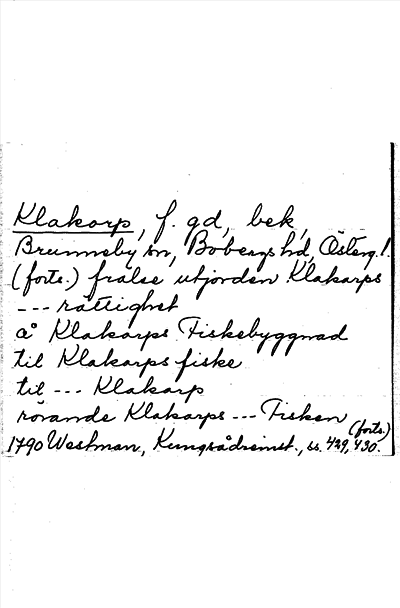 Klakorp, f. gd, bek,
Brunneby sn, Bobergs hd, Österg.l.
(forts.) frälse utjorden Klakarps
--- rättighet
å Klakarps Fiskebyggnad
til Klakarps fiske
til --- Klakarp
rörande Klakarps --- Fisken
(forts.)
1790 Westman, Kungsådreinst., ss. 429, 430.